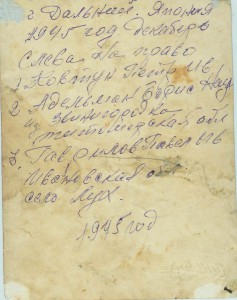 г Дальний. Япония
1945 год декабрь
Слева На право
1. Ковтун Петр Ив/
2. Адельман Борис Наум
из Звингородка
житомирская обл
3. Гаврилов Павел Ив
Ивановский обл
село Лух.
1945 год